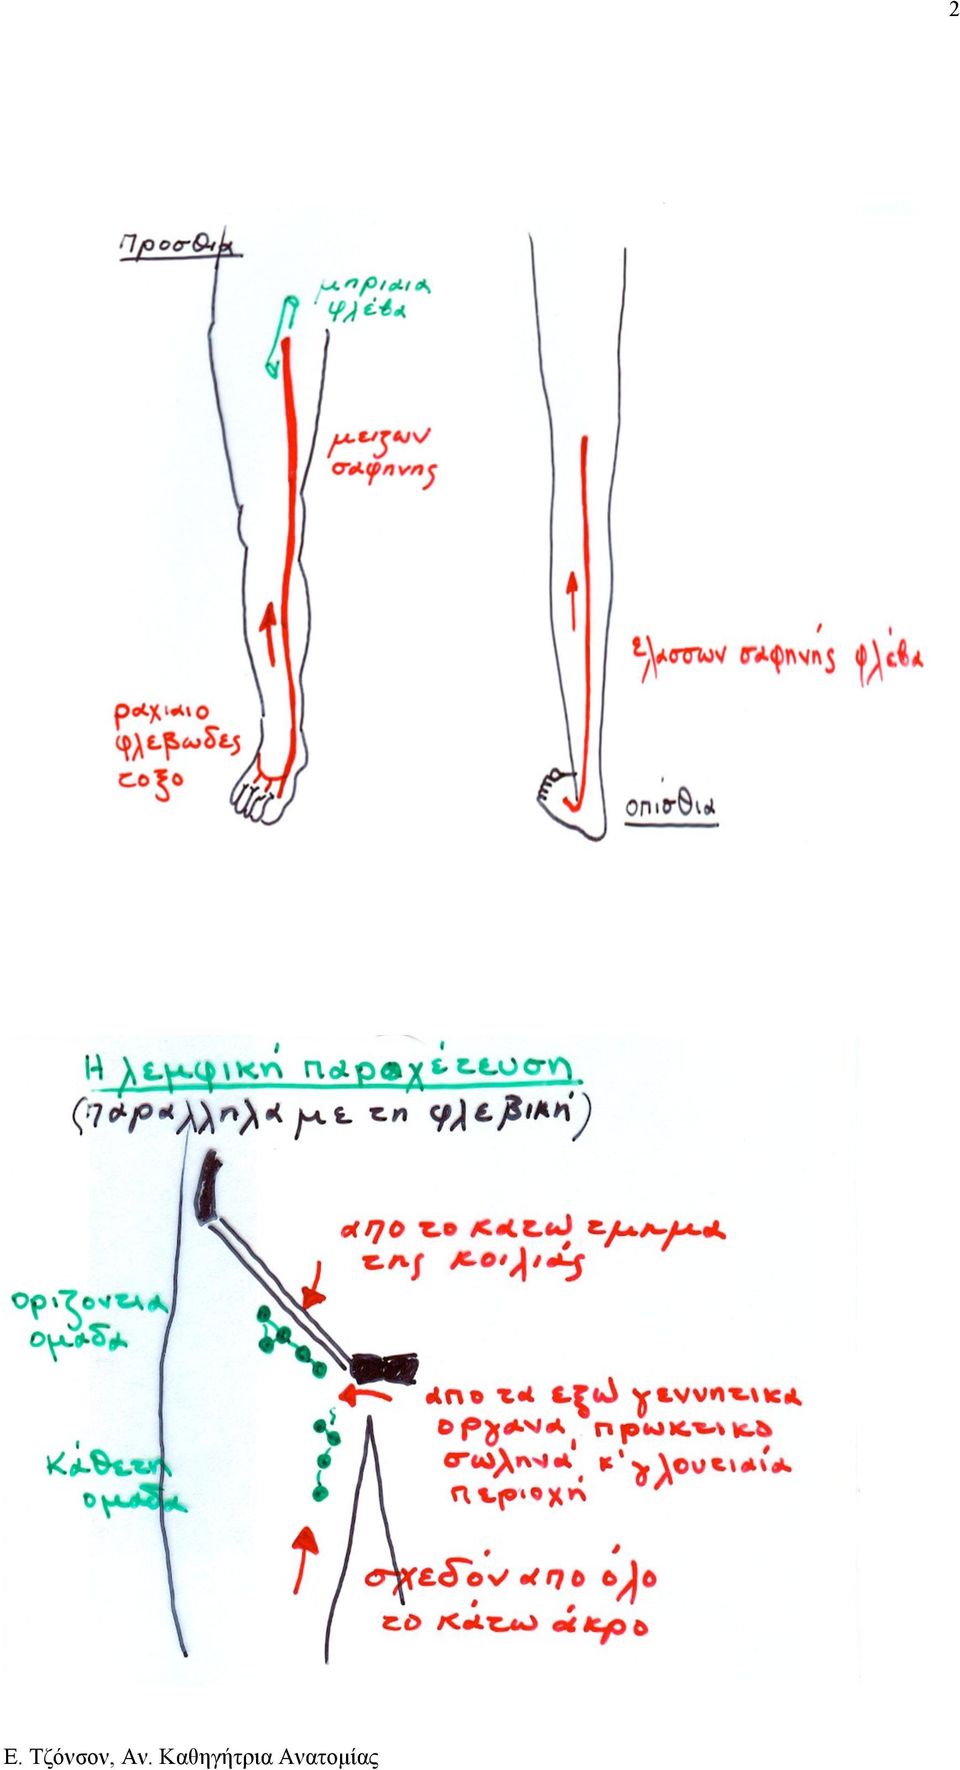 2
προσθια
μηριαια
φλέβα
μειζων
σαφηνης
ραχιαιο
φλεβωδες
τοξο
ελασσων σαφηνής φλέβα
οπίσθια
Η λεμφική παροχέτευση
(παράλληλα με τη φλεβική)
απο το κατω τμημα
της κοιλιάς
οριζοντια
ομαδα
απο τα εξω γεννητικα
οργανα, πρωκτικο
σωληνα, κ' γλουτιαία
περιοχή
κάθετη
ομαδα
σχεδόν απο όλο
το κάτω άκρο
Ε. Τζόνσον, Αν. Καθηγήτρια Ανατομίας